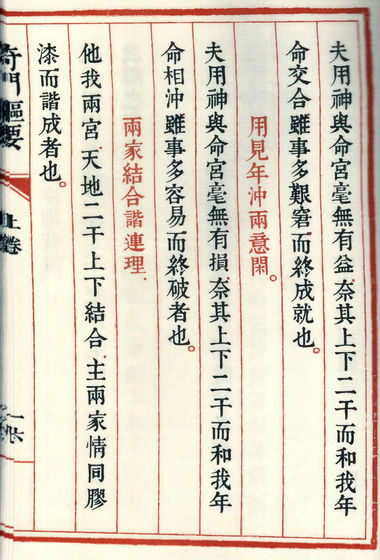 夫用神與命宮毫無有益奈其上下二干而和我年
命交合雖事多艱窘而終成就也。
用見年沖兩意閑。
夫用神與命宮毫無有損奈其上下二干而和我年
命相沖雖事多容易而終破者也。
兩家結合諧連理
他我兩宮天地二干上下結合主兩家情同膠
漆而諧成者也。
奇門樞要
上卷